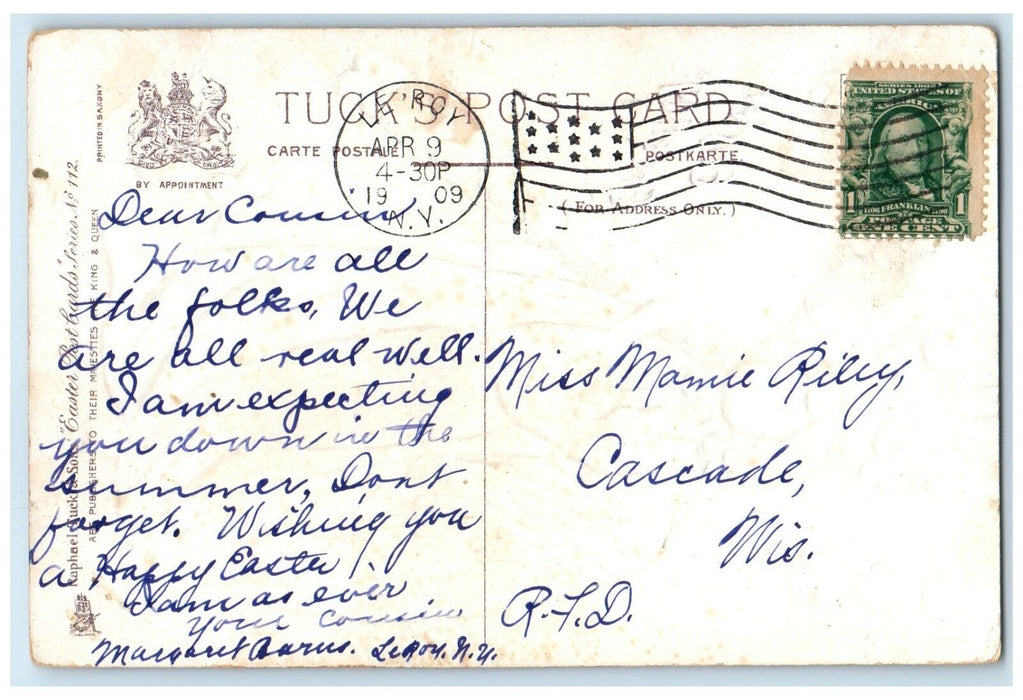 TUCK'S POST CARD
CARTE POSTALE
POSTKARTE
(FOR ADDRESS ONLY.)
BY APPOINTMENT
PRINTED IN SAXONY
Raphael Tuck & Sons' "Easter Post Cards" Series No 112.
ART PUBLISHERS TO THEIR MAJESTIES THE KING & QUEEN
LE ROY
APR 9
4-30P
1909
N.Y.
SERIES 1902
UNITED STATES OF
AMERICA
1 1706 FRANKLIN 1790 1
POSTAGE
ONE CENT
Dear Cousin
How are all
the folks, We
are all real well.
I am expecting
you down in the
summer, Dont
forget. Wishing you
a Happy Easter!
I am as ever
your cousin
Margaret LeRoy. N.Y.
Miss Mamie Riley,
Cascade,
Wis.
R.F.D.